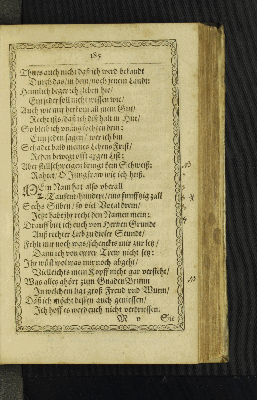 185
Thues auch nicht daß ich werd bekandt
Durch das / in dem / noch jenem Land:
Heimlich beger ich zleben hie /
Ein jeder soll nicht wissen wie /
Auch wie mir herkom all mein Gut /
Recht ists / daß ich diß halt in Hut /
So bleib ich vnangfochten dein:
Eim jeden sagen / wer ich bin
Schadet bald meines Lebens Frist /
Reden bewegt offt argen List:
Aber stillschweigen bringt kein Schweiß:
Rahtet / O Jungfraw wie ich heiß.
MEin Nam hat also vberall
Tausent / hundert / vnd funfftzig zall
Sechs Silben / so viel Vocal drein /
Jetzt habt ihr recht den Namen mein:
Drauff bitt ich euch von Hertzen Grund
Auß rechter Lieb zu dieser Stund /
Fehlt mir noch was / schenckts mir zur letz /
Dann ich von ewrer Trew nicht setz:
Ihr wüst wol was mir noch abgeht /
Vielleichts mein Kopff nicht gar versteht /
Was alles ghört zum Gnaden Brunn
In welchem ligt groß Frewd vnd Wunn /
Daß ich möcht dessen auch geniessen /
Ich hoff es werd euch nicht verdriessen.
M v
Sie